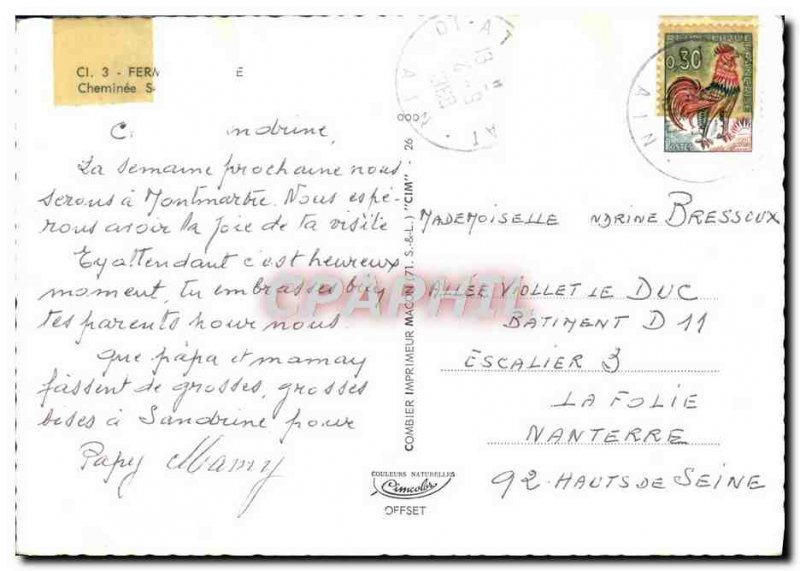 Cl. 3 - FERM E
Cheminée S-
C. ndrine,
La semaine prochaine nous
serons à Montmartre. Nous espé-
rons avoir la joie de ta visite
En attendant c'est heureux
moment, tu embrasses bien
tes parents pour nous.
Que papa et maman
fassent de grosses, grosses
bises à Sandrine pour
Papy Mamy
COMBIER IMPRIMEUR MACON (71. S.-&-L.) "CIM" - 26
COULEURS NATURELLES
Cimcolor
OFFSET
0,30
POSTES
AIN
MADEMOISELLE NDRINE BRESSOUX
ALLEE VIOLLET LE DUC
BATIMENT D 11
ESCALIER 3
LA FOLIE
NANTERRE
92 - HAUTS DE SEINE
CPAPHIL